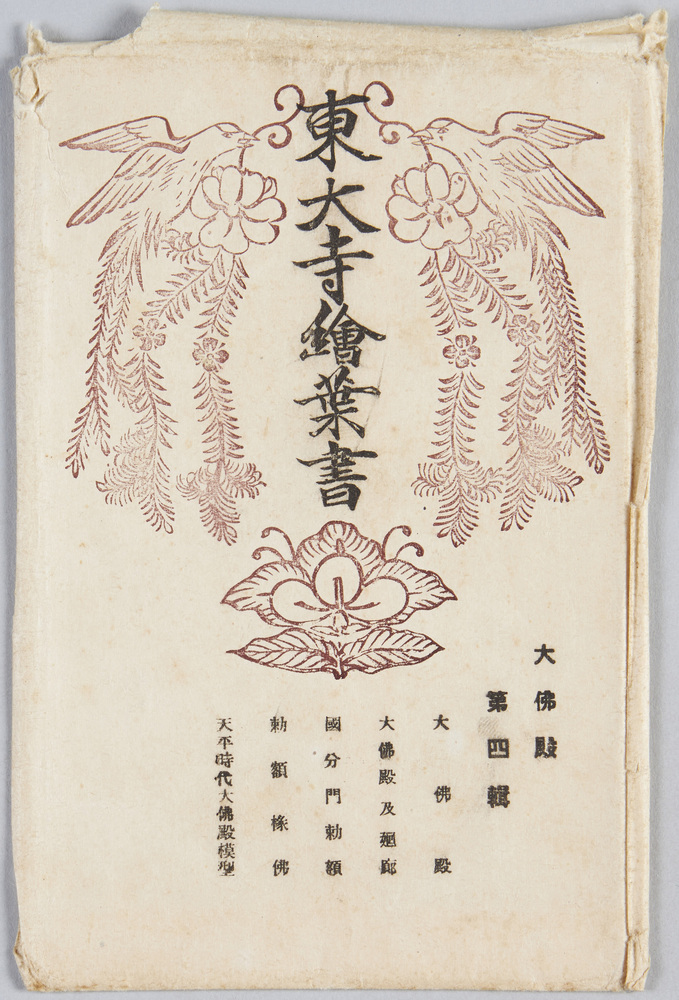 東大寺繪葉書
大佛殿
第四輯
大佛殿
大佛殿及廻廊
國分門勅額
勅額椽佛
天平時代大佛殿模型